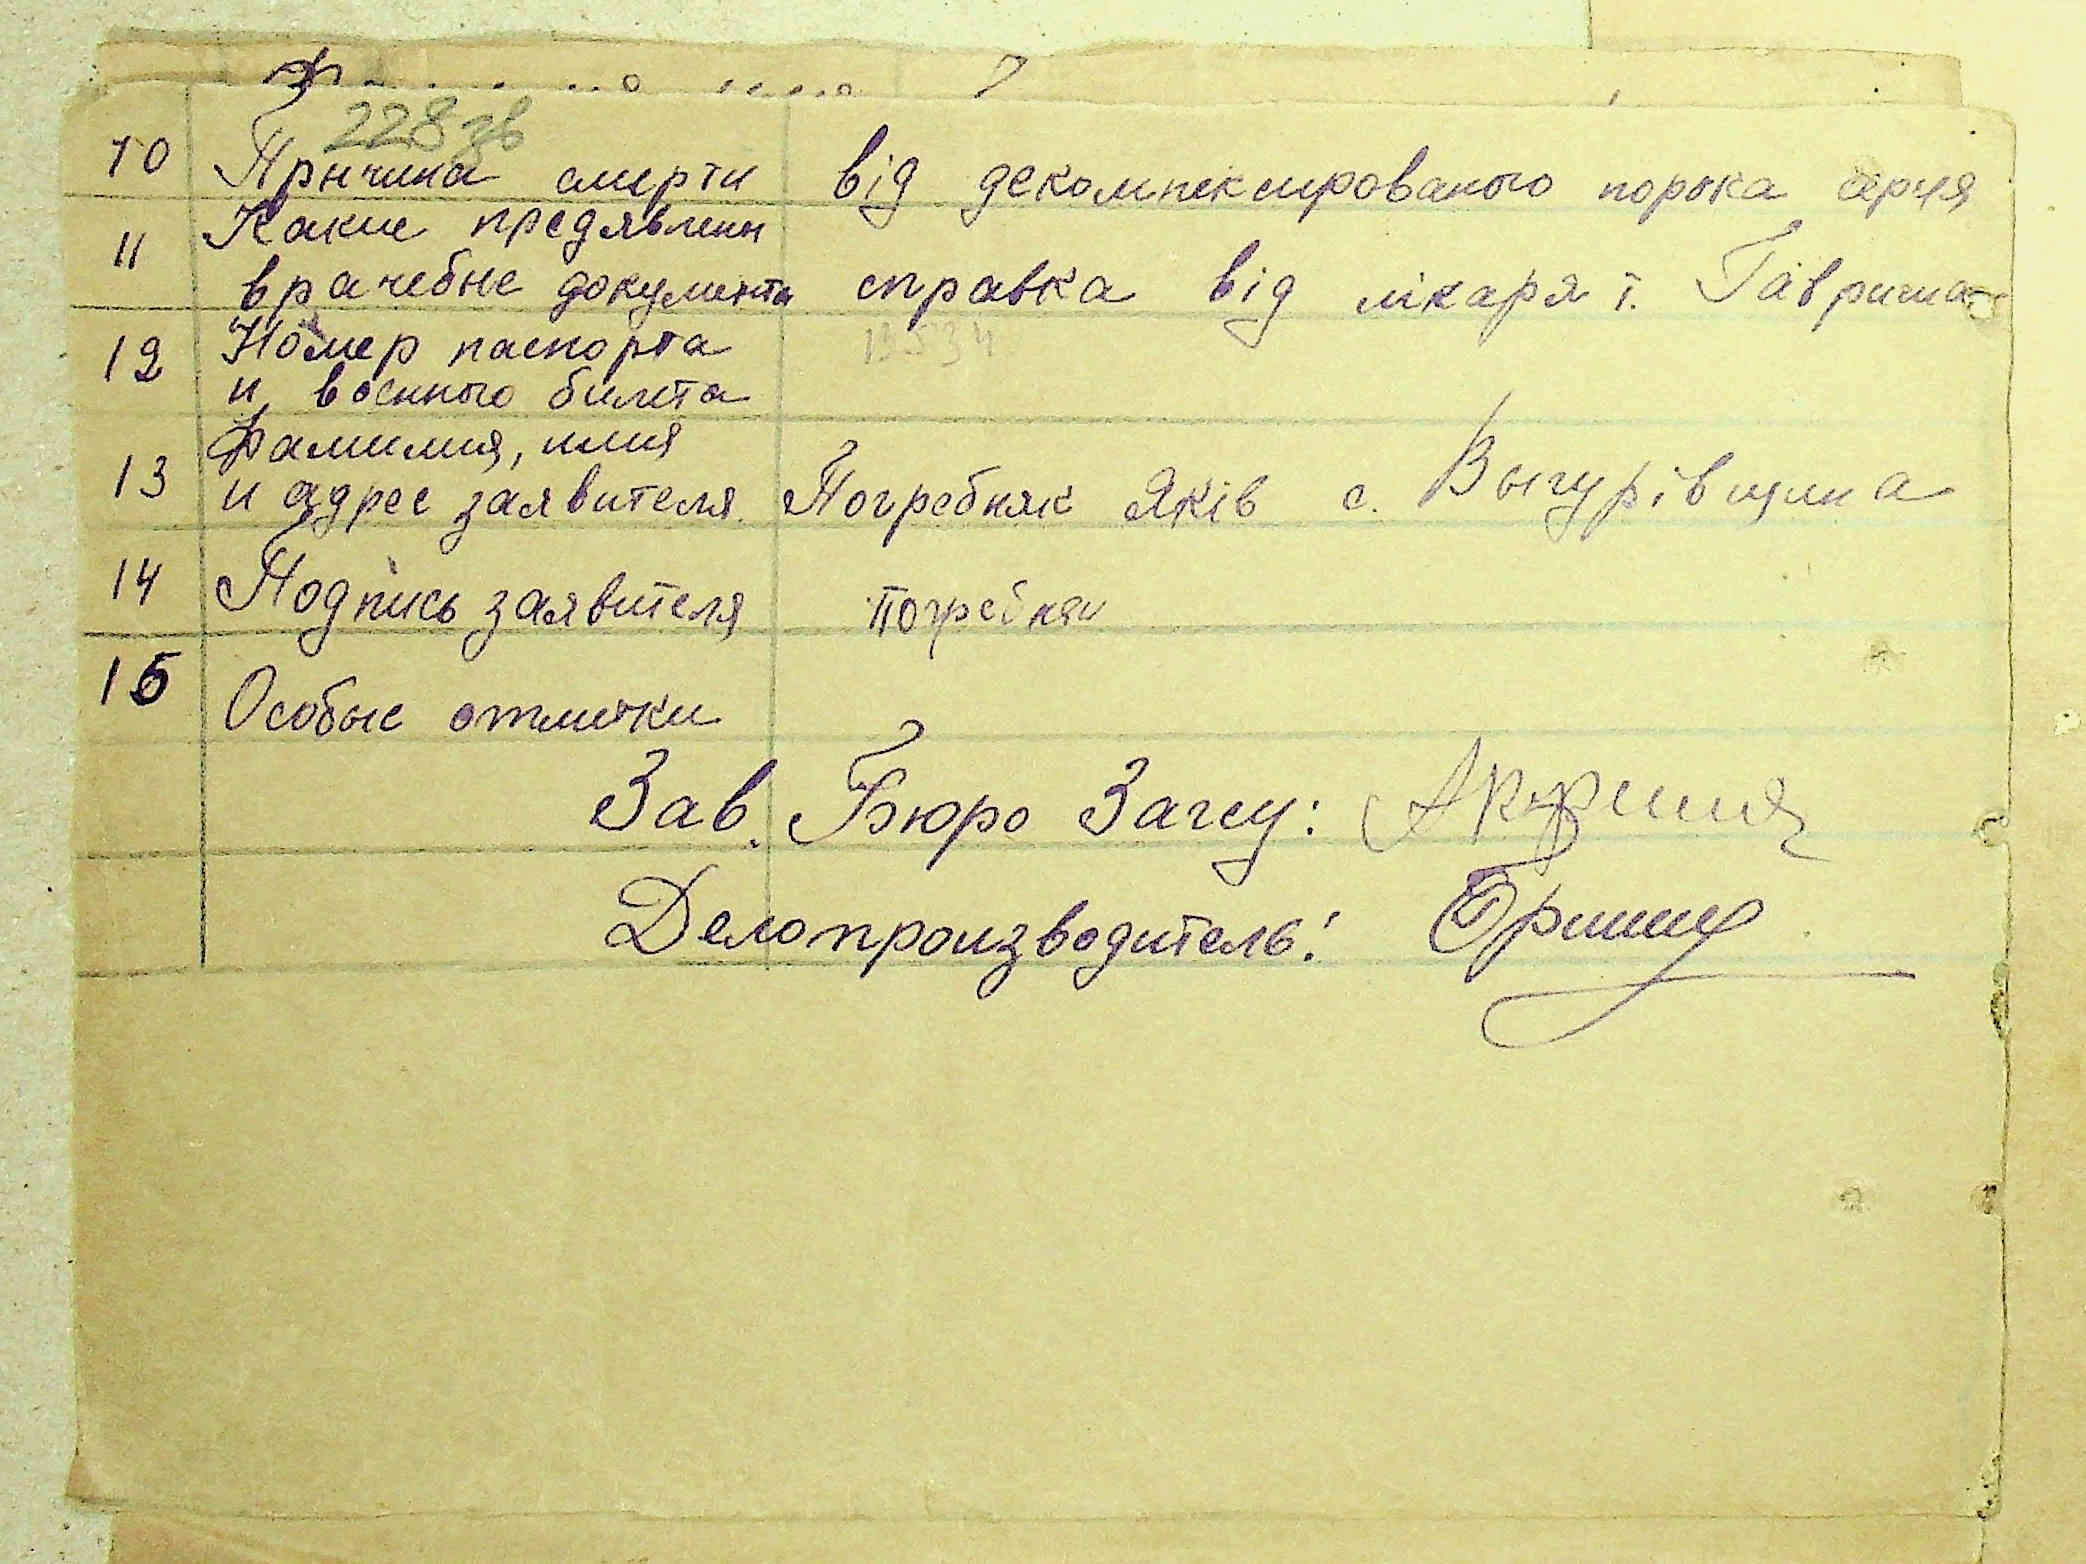 228 зв
10 Причина смерти від декомпексированого порока серця
11 Какие предявлены
врачебные документы справка від лікаря т. Гаврима
12 Номер паспорта 13534
и военного билета
13 Фамилия, имя
и адрес заявителя Погребняк Яків с. Выгурівщина
14 Подпись заявителя Погребняк
15 Особые отметки
Зав. Бюро Загсу:
Делопроизводитель: